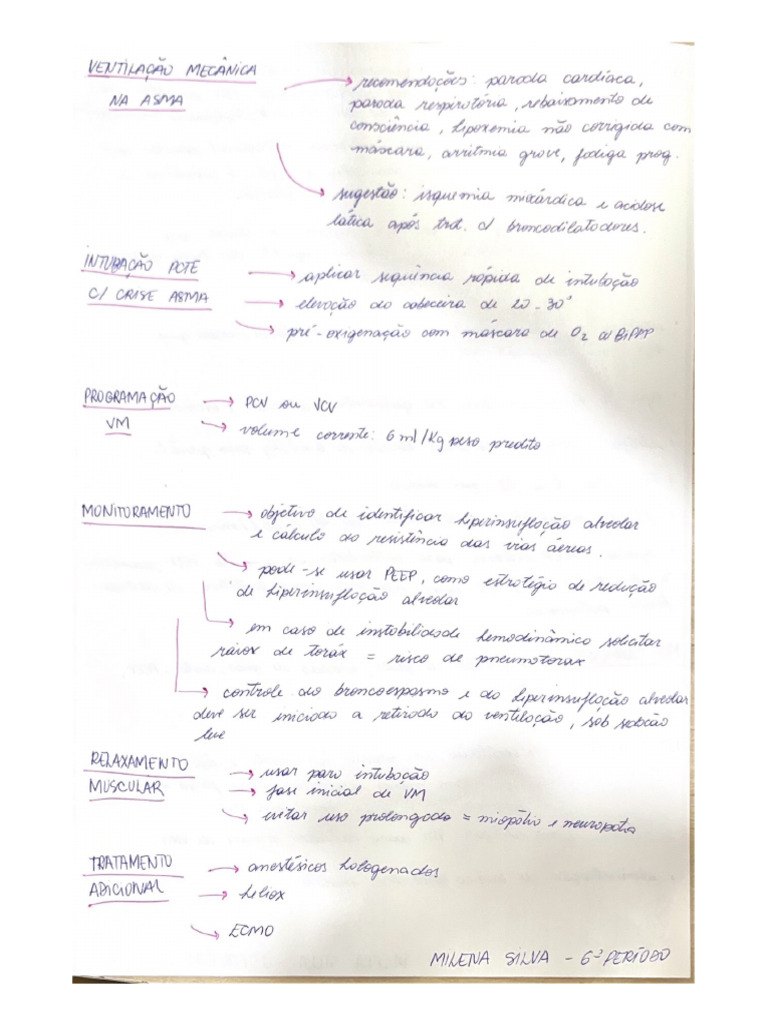 VENTILAÇÃO MECÂNICA
NA ASMA
→ recomendações: parada cardíaca,
parada respiratória, rebaixamento de
consciência, hipoxemia não corrigida com
máscara, arritmia grave, fadiga prog.
→ sugestão: isquemia miocárdica e acidose
lática após trat. c/ broncodilatadores.
INTUBAÇÃO PCTE
C/ CRISE ASMA
→ aplicar sequência rápida de intubação
→ elevação da cabeceira de 20-30°
→ pré-oxigenação com máscara de O2 ou BiPAP
PROGRAMAÇÃO
VM
→ PCV ou VCV
→ volume corrente: 6 ml/Kg peso predito
MONITORAMENTO
→ objetivo de identificar hiperinsuflação alveolar
e cálculo da resistência das vias áereas.
→ pode-se usar PEEP, como estratégia de redução
de hiperinsuflação alveolar
→ em caso de instabilidade hemodinâmica solicitar
raiox de toráx = risco de pneumotorax
→ controle do broncoespasmo e da hiperinsuflação alveolar
deve ser iniciada a retirada da ventilação, sob sedação
leve
RELAXAMENTO
MUSCULAR
→ usar para intubação
→ fase inicial de VM
→ evitar uso prolongado = miopatia e neuropatia
TRATAMENTO
ADICIONAL
→ anestésicos halogenados
→ heliox
→ ECMO
MILENA SILVA - 6º PERÍODO